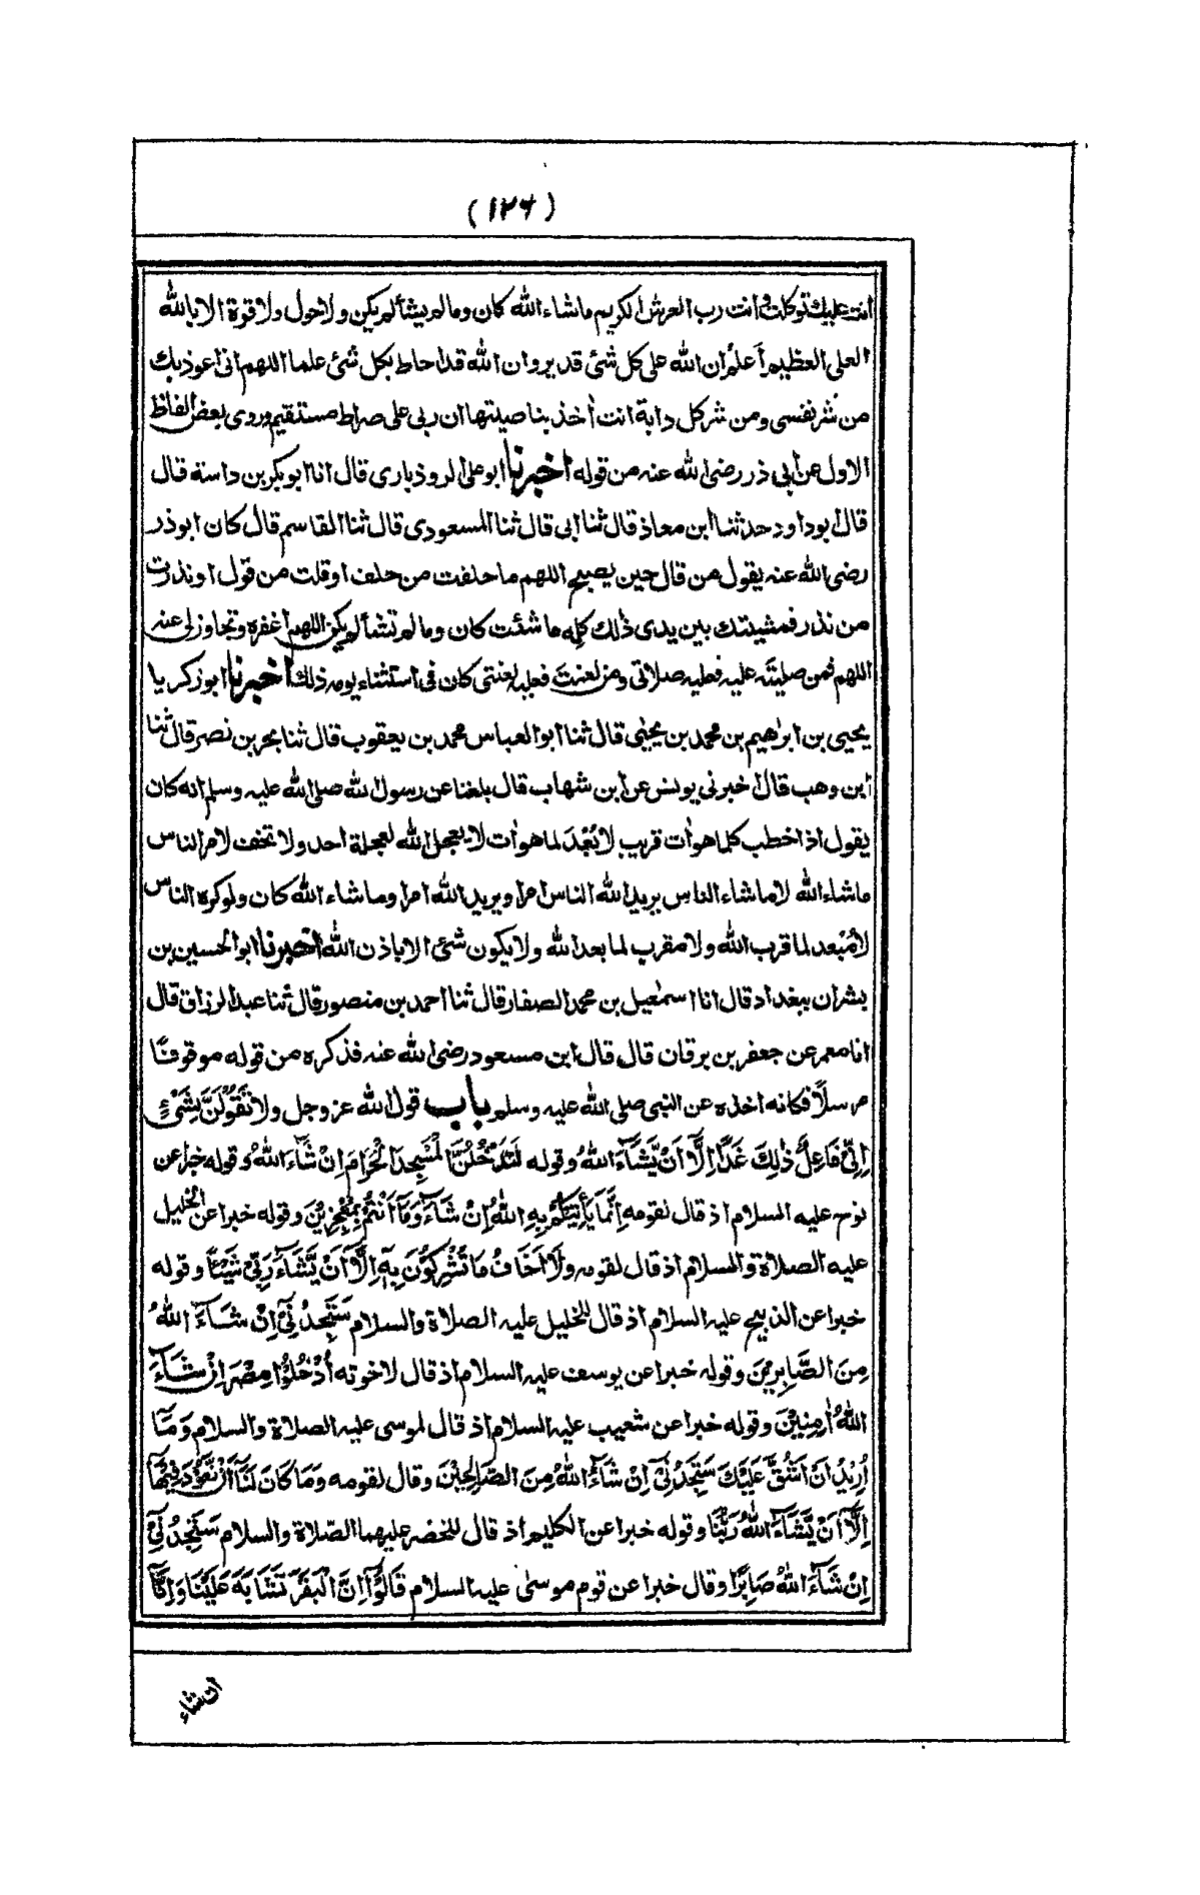 (١٢٦)
انت عليك توكلت وانت رب العرش الكريم ماشاء الله كان ومالم يشألم يكن ولاحول ولا قوة الا بالله
العلى العظيم أعلم أن الله على كل شئ قدير وان الله قد احاط بكل شئ علما اللهم انى اعوذبك
من شر نفسى ومن شركل دابة انت أخذ بناصيتها ان ربى على صراط مستقيم وروى بعض الفاظ
الاول عن أبى ذر رضى الله عنه من قوله اخبرنا ابو على الروذبارى قال انا ابوبكر بن داسة قال
قال ابوداود حدثنا ابن معاذ قال ثنا ابى قال ثنا المسعودى قال ثنا القاسم قال كان ابوذر
رضى الله عنه يقول من قال حين يصبح اللهم ما حلفت من حلف اوقلت من قول اونذرت
من نذر فمشيئتك بين يدى ذلك كله ما شئت كان ومالم تشألم يكن اللهم اغفره وتجاوزلى عنه
اللهم فمن صليت عليه فعليه صلاتى ومن لعنت فعليه لعنتى كان فى استثناء يومه ذلك اخبرنا ابوزكريا
يحيى بن ابراهيم بن محمد بن يحيٰى قال ثنا ابوالعباس محمد بن يعقوب قال ثنا بحر بن نصر قال ثنا
ابن وهب قال اخبرنى يونس عن ابن شهاب قال بلغنا عن رسول الله صلى الله عليه وسلم انه كان
يقول اذا خطب كلما هوأت قريب لا بُعْدَ لما هوأت لايعجل الله لعجلة احد ولا تخف لامرالناس
ماشاء الله لاماشاء الناس يريد الله الناس امرا ويريد الله امرا وماشاء الله كان ولوكره الناس
لامُبْعد لما قرب الله ولا مقرب لما بعد الله ولا يكون شئ الا باذن الله اخبرنا ابوالحسين بن
بشران ببغداد قال انا اسمٰعيل بن محمد الصفار قال ثنا احمد بن منصور قال ثنا عبد الرزاق قال
انا معمر عن جعفر بن برقان قال قال ابن مسعود رضى الله عنه فذكره من قوله موقوفًا
مرسلًا فكانه اخذه عن النبى صلى الله عليه وسلم باب قول الله عزوجل ولا تَقُوْلَنَّ بِشَىْءٍ
اِنِّىْ فَاعِلٌ ذٰلِكَ غَدًا اِلَّآ اَنْ يَّشَآءَ اللهُ وقوله لَتَدْخُلُنَّ الْمَسْجِدَ الْحَرَامَ اِنْ شَآءَ اللهُ وقوله خبرا عن
نوح عليه السلام اذ قال لقومه اِنَّمَا يَأْتِيْكُمْ بِهِ اللهُ اِنْ شَآءَ وَمَآ اَنْتُمْ بِمُعْجِزِيْنَ وقوله خبرا عن الخليل
عليه الصلاة والسلام اذ قال لقومه وَلَآ اَخَافُ مَا تُشْرِكُوْنَ بِهٖٓ اِلَّآ اَنْ يَّشَآءَ رَبِّىْ شَيْئًا وقوله
خبرا عن الذبيح عليه السلام اذ قال للخليل عليه الصلاة والسلام سَتَجِدُنِىْٓ اِنْ شَآءَ اللهُ
مِنَ الصَّابِرِيْنَ وقوله خبرا عن يوسف عليه السلام اذ قال لاخوته اُدْخُلُوْا مِصْرَ اِنْ شَآءَ
اللهُ اٰمِنِيْنَ وقوله خبرا عن شعيب عليه السلام اذ قال لموسى عليه الصلاة والسلام وَمَآ
اُرِيْدُ اَنْ اَشُقَّ عَلَيْكَ سَتَجِدُنِىْٓ اِنْ شَآءَ اللهُ مِنَ الصَّالِحِيْنَ وقال لقومه وَمَا كَانَ لَنَآ اَنْ نَّعُوْدَ فِيْهَآ
اِلَّآ اَنْ يَّشَآءَ اللهُ رَبُّنَا وقوله خبرا عن الكليم اذ قال للخضر عليهما الصلاة والسلام سَتَجِدُنِىْٓ
اِنْ شَآءَ اللهُ صَابِرًا وقال خبرا عن قوم موسىٰ عليه السلام قَالُوْٓا اِنَّ الْبَقَرَ تَشَابَهَ عَلَيْنَا وَاِنَّآ
ان شاء